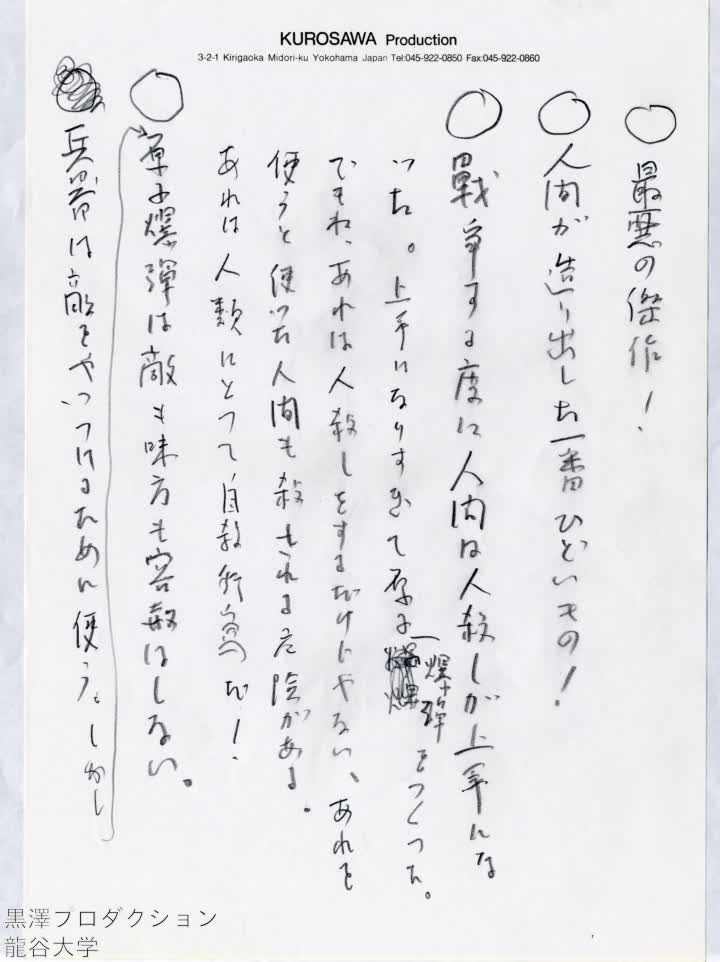 KUROSAWA Production
3-2-1 Kirigaoka Midori-ku Yokohama Japan Tel:045-922-0850 Fax:045-922-0860
○ 最悪の傑作!
○ 人間が造り出した一番ひどいもの!
○ 戦争する度に人間は人殺しが上手にな
った。上手になりすぎて原子爆弾をつくった。
でもね、あれは人殺しをするだけじやない、あれを
使うと使った人間も殺される危険がある。
あれは人類にとって自殺行為だ!
○ 原子爆弾は敵も味方も容赦はしない。
兵器は敵をやっつけるために使う。しかし
黒澤プロダクション
龍谷大学